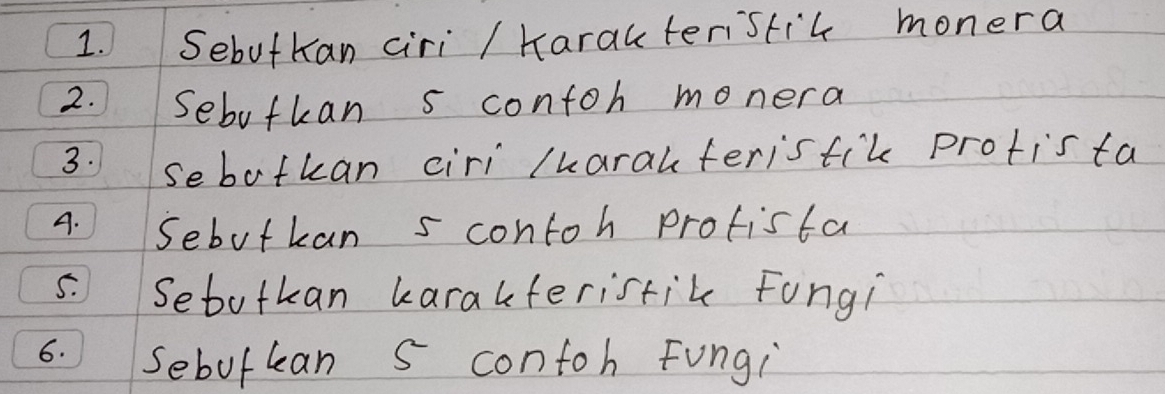 1. Sebutkan ciri / karakteristik monera
2. Sebutkan 5 contoh monera
3. Sebutkan ciri /karakteristik Protista
4. Sebutkan 5 contoh Protista
5. Sebutkan karakteristik Fungi
6. Sebutkan 5 contoh Fungi